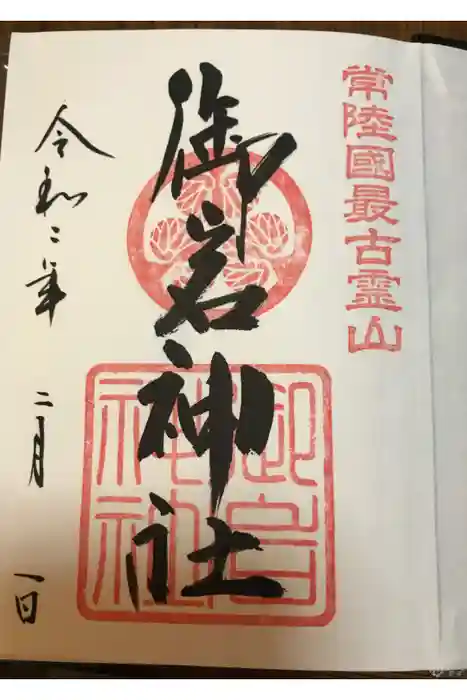 常陸國最古霊山
御岩神社
御岩
神社
令和二年
二月
一日